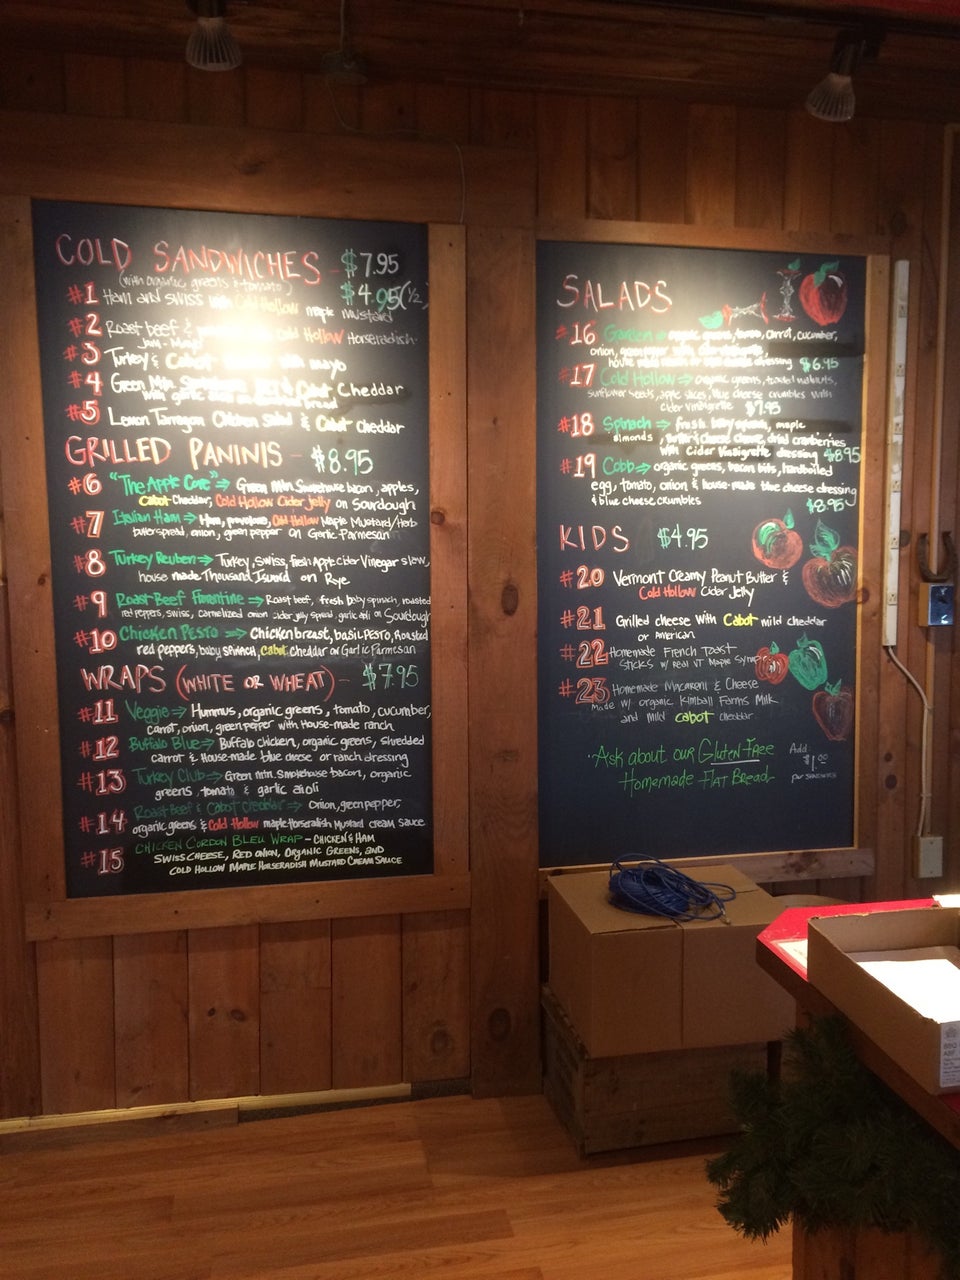 COLD SANDWICHES - $7.95
(with organic greens & tomato) $4.05 (½)
#1 Ham and Swiss with Cold Hollow maple mustard
#2 Roast beef & Cold Hollow Horseradish
Jam - Mayo
#3 Turkey & Cabot with mayo
#4 Green Mtn. Smokehouse & Cabot Cheddar
with garlic aioli on bread
#5 Lemon Tarragon Chicken Salad & Cabot cheddar
GRILLED PANINIS - $8.95
#6 "The Apple Core" ⇒ Green Mtn Smokehouse bacon, apples,
Cabot Cheddar, Cold Hollow Cider Jelly on Sourdough
#7 Italian Ham ⇒ Ham, provolone, Cold Hollow Maple Mustard/Herb
butter spread, onion, green pepper on Garlic Parmesan
#8 Turkey Reuben ⇒ Turkey, Swiss, fresh Apple Cider Vinegar slaw,
house made Thousand Island on Rye
#9 Roast Beef Florentine ⇒ Roast beef, fresh baby spinach, roasted
red peppers, swiss, carmelized onion cider jelly spread, garlic aioli on Sourdough
#10 Chicken Pesto ⇒ Chicken breast, basil PESTO, Roasted
red peppers, baby SPINACH, Cabot Cheddar on Garlic Parmesan
WRAPS (WHITE OR WHEAT) - $7.95
#11 Veggie ⇒ Hummus, organic greens, tomato, cucumber,
carrot, onion, green pepper with House-made ranch
#12 Buffalo Blue ⇒ Buffalo Chicken, organic greens, shredded
carrot & House-made blue cheese or ranch dressing
#13 Turkey Club ⇒ Green Mtn. Smokehouse bacon, organic
greens, tomato & garlic aioli
#14 Roast Beef & Cabot Cheddar ⇒ Onion, green pepper,
organic greens & Cold Hollow maple Horseradish Mustard cream sauce
#15 CHICKEN CORDON BLEU WRAP - CHICKEN & HAM
SWISS CHEESE, RED ONION, ORGANIC GREENS, AND
COLD HOLLOW MAPLE HORSERADISH MUSTARD CREAM SAUCE
SALADS
#16 Garden ⇒ organic greens, tomato, carrot, cucumber,
onion, green pepper with cider vinaigrette,
house made dressing $6.95
#17 Cold Hollow ⇒ organic greens, toasted walnuts,
sunflower seeds, apple slices, blue cheese crumbles with
cider vinaigrette $7.95
#18 Spinach ⇒ fresh baby spinach, maple
almonds, cheese, dried cranberries
with Cider Vinaigrette dressing $8.95
#19 Cobb ⇒ organic greens, bacon bits, hardboiled
egg, tomato, onion & house-made blue cheese dressing
& blue cheese crumbles $8.95
KIDS $4.95
#20 Vermont Creamy Peanut Butter &
Cold Hollow Cider Jelly
#21 Grilled cheese with Cabot mild cheddar
or American
#22 Homemade French Toast
Sticks w/ Real VT Maple Syrup
#23 Homemade Macaroni & Cheese
Made w/ organic Kimball Farms Milk
and mild Cabot cheddar
Ask about our Gluten Free
Homemade Flat Bread
Add:
$1.00
per sandwich